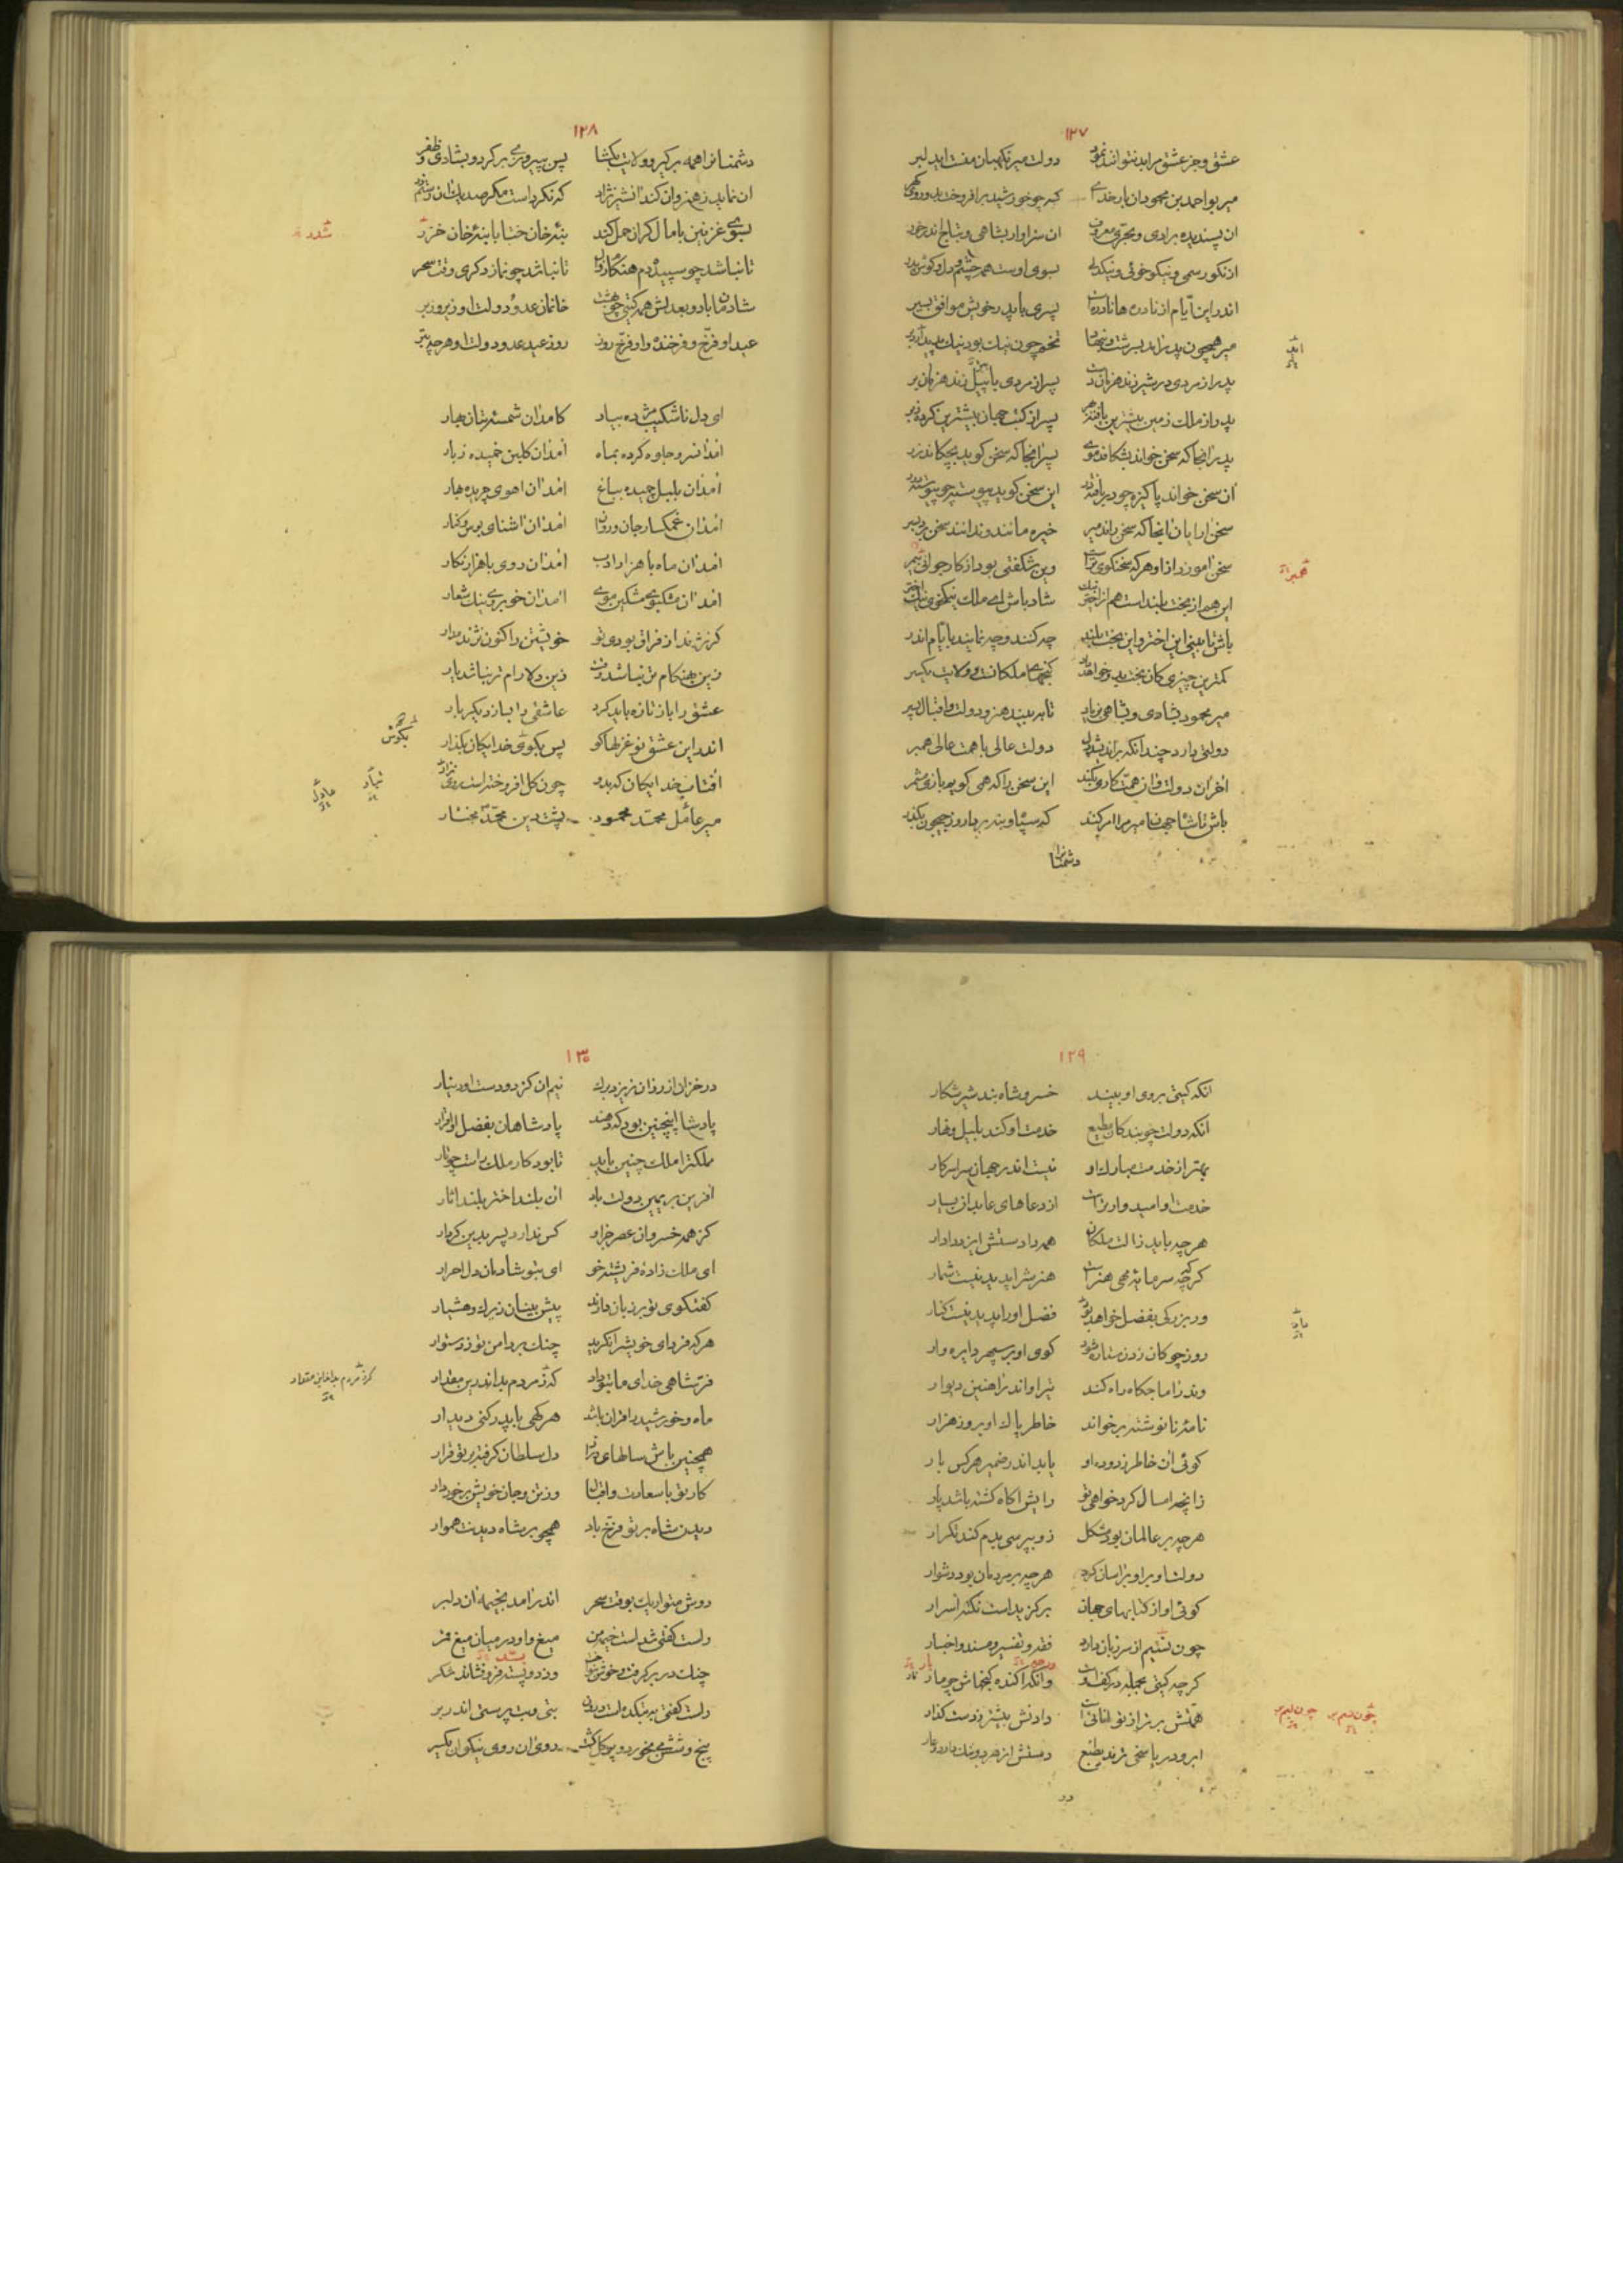 ١٢٧
عشق و جز عشق مرا بد نتوانند نمود دولت میر نکهبان منست اید لبر
میر بو احمد بن محمود ان بار خدای که چو خورشید برافروخت بدو روی کهر
ان پسندیده برادی و بحری معروف ان سزاوار بشاهی و بتاج اندر خور
از نکو رسمی و نیکو خوئی و نیکدلی بسوی اوست همه چشم و دل و کوش پدر
اندر این ایام از نادره ها نادره است پسری باپدر خویش موافق بسیر
میر همچون پدر امد بسرشت و بنهاد تخم چون نیک بود نیک پدید آرد بر
پدر از مردی در شیر زند هر زمان دست پسر از مردی با پیل زند هر زمان بر
پدر از ملک زمین بیشترین یافته بهر پسر از کتب جهان بیشترین کرده ز بر
پدر انجا که سخن خواند بشکافد موی پسر انجا که سخن کوید بچکاند زر
ان سخن خواند پاکیزه چو در یافته در این سخن کوید پیوسته چو پیوسته درر
سخن ارایان انجا که سخن راند میر خیره مانند و ندانند سخن برد بسر
سخن اموزد از او هر که سخنکوی تر است وین شکفتی بود از کار جوانی نه پیر
این هم از بخت بلند است هم از اختر نیک شاد باش ای ملک نیکخوی نیک اختر
باش تا بینی این اختر و این بخت بلند چه کنند و چه نمایند بایام اندر
کمترین چیزی کان بخت بدو خواهد داد کنجهای ملکانست و ولایت یکسر
میر محمود بشادی و بشاهی زیاد تا ببیند هنر و دولت و اقبال پسر
دولتی دارد چندانکه براندیشد دل دولت عالی با همت عالی همبر
آخر ان دولت و ان همت کاری بکند این سخن را که همی کویم بازی مشمر
باش تا شاه جهان میر مرا امر کند که سپاه و بنه بردار و ز جیحون بگذر
دشمنانرا
١٢٨
دشمنانرا همه برکیر و ولایت بکشا پس بپیروزی برکرد و بشادی و ظفر
ان نماید ز هنر وان کند ان شیر نژاد که نکرد است مکر صد یک از ان رستم زر
بسوی غزنین با مال کران حمل کند بنهٔ خان ختا با بنهٔ خان خزر
تا نباشد چو سپیده دم هنکام زوال تا نباشد چو نماز دکری وقت سحر
شادمان بادو بعدلش همه کیتی چو بهشت خانمان عدو دولت او زیر و زبر
عید او فرخ و فرخنده و او فرخ روز روز عید عدو دولت او هرچه بتر
ای دل ناشکیب مژده بیار کامد ان شمسه بتان بهار
امد ان سرو جلوه کرده بماه امد ان کلبن خمیده ز بار
امد ان بلبل چمیده بباغ امد ان اهوی چریده بهار
امد ان غمکسار جان و روان امد ان اشنای بوس و کنار
امد ان ماه با هزار ادب امد ان روی با هزار نکار
امد ان مشکبوی مشکین موی امد ان خوبروی نیک شعار
کر نژند از فراق بودی تو خویشتن را کنون نژند مدار
زین به هنکام تر نباشد وقت زین دلارام تر نباشد یار
عشق را باز تازه باید کرد عاشقی را بساز دیکر بار
اندر این عشق نو غزلها کو پس بکوی خدایکان بکذار
آفتاب خدایکان که بدو چون کل افروخته است روی نژاد
میر عادل محمد محمود پشت دین محمد مختار
١٢٩
انکه کیتی بروی او بیند خسرو شاه بند شیر شکار
انکه دولت چو بندکان مطیع خدمت او کند بلیل و نهار
بهتر از خدمت مبارک او نیست اندر جهان سراسر کار
خدمت او امیدوار تر است از دعاهای عابد از بسیار
هرچه باید ز الت ملکان همه دادستش ایزد دادار
کرچه سرمایهٔ مهی هنر است هنرش را پدید نیست شمار
ور بزرکی بفضل خواهد بود فضل او را پدید نیست کنار
روز چوکان زدن ستاره شود کوی او بر سپهر دایره وار
وندر اماجکاه راه کند تیر او اندر آهنین دیوار
نامهٔ نا نوشته برخواند خاطر پاک او بروز هزار
کوئی ان خاطر زدوده او یابد اندر ضمیر هر کس بار
زانچه امسال کرد خواهی تو رایش اکاه کشته باشد پار
هرچه بر عالمان بود مشکل زو بپرسی بدم کند تکرار
دولت او بر او بر اسان کرد هرچه بر مردمان بود دشوار
کوئی او از کتابهای جهان برکزیده است نکته اسرار
چون نسیم از سر زبان دارد فقه و تفسیر و مسند و اخبار
کرچه کیتی بجمله در کف اوست وانکه اکنده کنجهاش چو مار
همتش برتر از توانائیست دادنش بیشتر ز دست کذار
ابر و دریا سخی ترند بطبع دستش از هر دو ننک دارد و عار
در
١٣٠
در خزان از رزان نریزد برک نیم ان کز دو دست او دینار
پادشا اینچنین بود که دهند پادشاهان بفضل او اقرار
ملکتر املک چنین باید تا بود کار ملک راست چو تار
آفرین بر یمین دولت باد ان بلند اختر بلند اثار
کز همه خسروان عصر جز او کس ندارد پسر بدین کردار
ای ملک زادهٔ فریشته خو ای بتو شادمان دل احرار
کفتکوی تو بر زبان دارند پیش بینان زیرک و هشیار
هر که فردای خویشرا نکرید چنک در دامن تو زد ستوار
فر شاهی خدای ما بتو داد که ز مردم بداند این مقدار
ماه و خورشید را قران باشد هر کهی با پدر کنی دیدار
همچنین باش سالهای دراز دل سلطان کرفته بر تو قرار
کار تو با سعادت و اقبال وز تن و جان خویش برخوردار
دیدن شاه بر تو فرخ باد همچو بر شاه دیدنت هموار
دوش متواریک بوقت سحر اندر امد بخیمه ان دلبر
راست کفتی شد است خیمه من میغ و او در میان میغ قمر
چنک در بر کرفت و خوش بنواخت وز دو بسد فرو فشاند شکر
راست کفتی به بتکده است درون بتی و بت پرستی اندر بر
پنج و شش می بخورد و پر کل کشت روی ان روی نیکوان یکسر